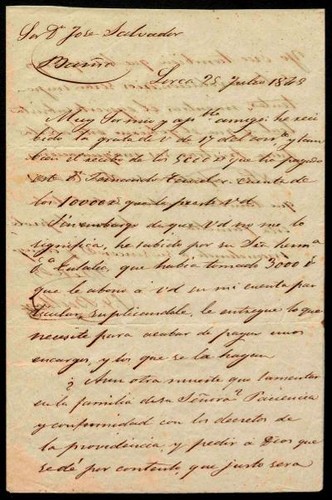 Sor Dn Jose Salvador
Lorca 28 Julio 1848
Muy Sor mio y apdo amigo: he reci
bido la grata de V de 17 del corrte y tam
bien el recibo de los 5000 que ha pagado
Dn Fernando a cuenta de
los 10000 que le presté Vd
Sin embargo de que Vd no me lo
significa, he sabido por su Sra herma
Da Eulalia, que habia tomado 3000
que le abono á Vd en mi cuenta par
ticular, suplicandole, le entregue lo que
necesite para acabar de pagar unos
encargos, y los que se la hagan
¿ Aun otra muerte que lamentar
en la familia de su Señora? Paciencia
y conformidad con los decretos de
la providencia, y pedir á Dios que
se dé por contento, que justo será